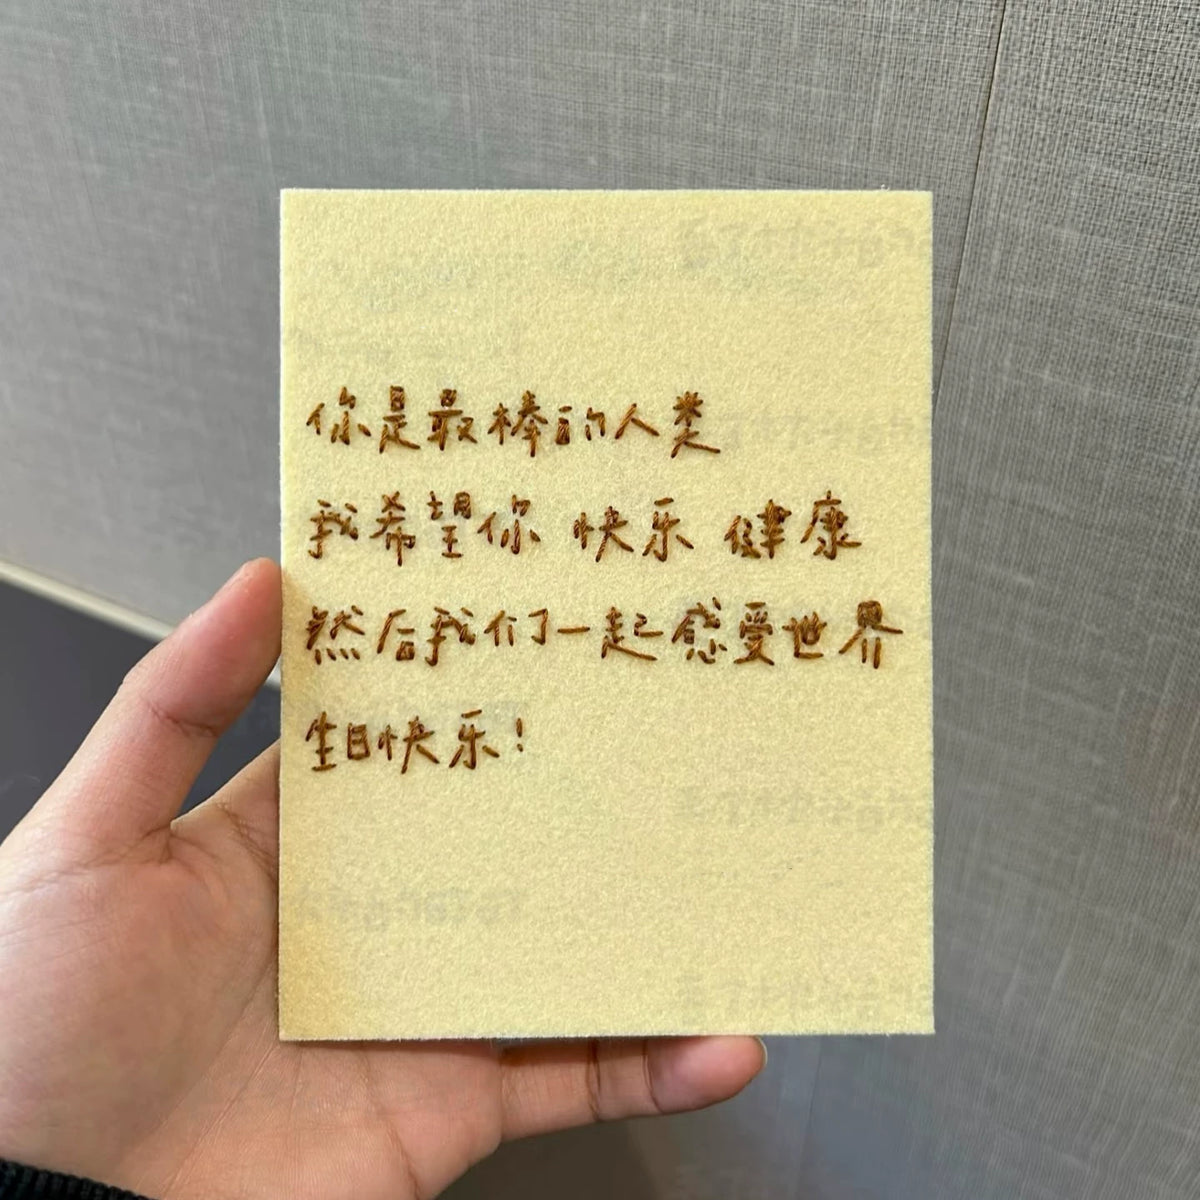 你是最棒的人类
我希望你 快乐 健康
然后我们一起感受世界
生日快乐！